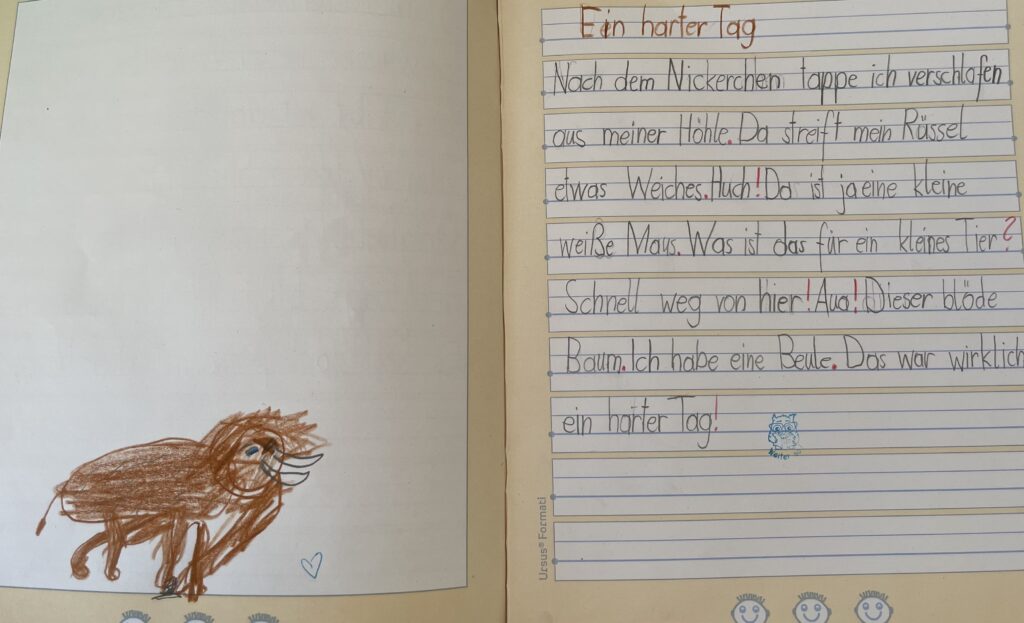 Ein harter Tag
Nach dem Nickerchen tappe ich verschlafen
aus meiner Höhle. Da streift mein Rüssel
etwas Weiches. Huch! Da ist ja eine kleine
weiße Maus. Was ist das für ein kleines Tier?
Schnell weg von hier! Aua! Dieser blöde
Baum. Ich habe eine Beule. Das war wirklich
ein harter Tag!
Weiter so!
Ursus® Formati